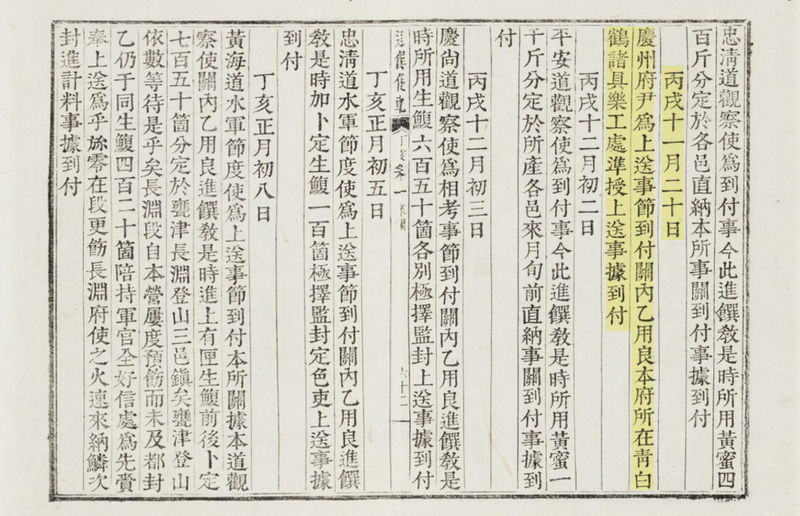 忠淸道觀察使爲到付事今此進饌敎是時所用黃蜜四
百斤分定於各邑直納本所事關到付事據到付
丙戌十一月二十日
慶州府尹爲上送事節到付關內乙用良本府所在靑白
鶴諸具樂工處準授上送事據到付
丙戌十二月初二日
平安道觀察使爲到付事今此進饌敎是時所用黃蜜一
千斤分定於所產各邑來月旬前直納事關到付事據到
付
丙戌十二月初三日
慶尙道觀察使爲相考事節到付關內乙用良進饌敎是
時所用生鰒六百五十箇各別極擇監封上送事據到付
丁亥正月初五日
忠淸道水軍節度使爲上送事節到付關內乙用良進饌
敎是時加卜定生鰒一百箇極擇監封定色吏上送事據
到付
丁亥正月初八日
黃海道水軍節度使爲上送事節到付本所關據本道觀
察使關內乙用良進饌敎是時進上有匣生鰒前後卜定
七百五十箇分定於甕津長淵登山三邑鎭矣甕津登山
依數等待是乎矣長淵段自本營屢度預飭而未及都封
乙仍于同生鰒四百二十箇陪持軍官全好信處爲先賷
奉上送爲乎旀零在段更飭長淵府使之火速來納鱗次
封進計料事據到付